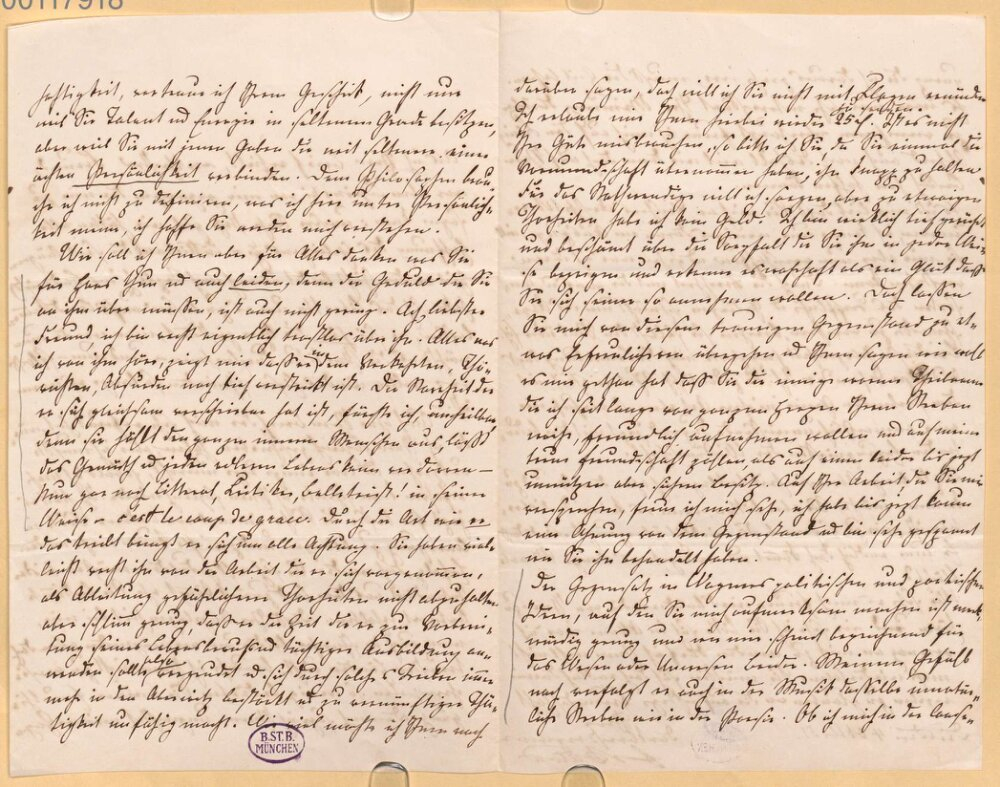 00117918
haftigkeit, vertraue ich Ihrem Geschick, nicht nur
weil Sie Talent und Energie in seltenem Grade besitzen,
aber weil Sie mit jenen Gaben die weit seltenere einer
ächten Persönlichkeit verbinden. Dem Philosophen brau-
che ich nicht zu definiren, was ich hier unter Persönlich-
keit meine, ich hoffe Sie werden mich verstehen.
Wie soll ich Ihnen aber für Alles danken was Sie
für Hans thun und auch leiden, denn die Geduld die Sie
an ihm üben müssen, ist auch nicht gering. Ach liebster
Freund ich bin recht eigentlich trostlos über ihn. Alles was
ich von ihm höre, zeigt mir dass er in dem Verkehrten, Thö-
richten, Absurden noch tief verstrickt ist. Die Narrheit der
er sich gleichsam verschrieben hat ist, fürchte ich, unheilbar,
denn sie höhlt den ganzen innern Menschen aus, läßt
das Gemüth und jeden edleren Lebenskeim verdorren —
Nun gar noch Litterat, Kritiker, belletrist! in seiner
Weise — c'est le coup de grace. Durch die Art wie er
das treibt bringt er sich um alle Achtung. Sie haben viel-
leicht recht ihn von der Arbeit die er sich vorgenommen,
als Ableitung gefährlicherer Thorheiten nicht abzuhalten
aber schlimm genug, dass er die Zeit die er zur Vorberei-
tung seines Lebensberufs und tüchtiger Ausbildung an-
wenden sollte also vergeudet und sich durch solches Treiben immer
mehr in dem Aberwitz bestärkt und zu vernünftiger Thä-
tigkeit unfähig macht. Wie viel möchte ich Ihnen noch
B.ST.B.
MÜNCHEN
darüber sagen, doch will ich Sie nicht mit Klagen ermüden.
Ich erlaube mir Ihnen hierbei wieder 25 zu senden. Ist es nicht
Ihre Güte misbrauchen, so bitte ich Sie, da Sie einmal die
Vormundschaft übernommen haben, ihn knapp zu halten.
Für das Nothwendige will ich sorgen, aber zu etwaigen
Thorheiten habe ich kein Geld. Ich bin wirklich tief gerührt
und beschämt über die Sorgfalt die Sie ihm in jeder Wei-
se bezeigen und erkenne es wahrhaft als ein Glück dass
Sie sich seiner so annehmen wollen. Doch lassen
Sie mich von diesem traurigen Gegenstand zu et-
was Erfreulicherem übergehen und Ihnen sagen wie wohl
es mir gethan hat dass Sie die innige warme Theilnahme
die ich seit lange von ganzem Herzen Ihrem Streben
weihe, freundlich aufnehmen wollen und auf meine
treue Freundschaft zählen, als auf einen leider bis jezt
unnützen aber sichern Besitz. Auf Ihre Arbeit, die Sie mir
versprechen, freue ich mich sehr, ich habe bis jezt kaum
eine Ahnung von dem Gegenstand und bin sehr gespannt
wie Sie ihn behandelt haben.
Der Gegensatz in Wagners politischen und poetischen
Ideen, auf den Sie mich aufmerksam machen ist merk-
würdig genug und wie mir scheint bezeichnend für
das Wesen oder Unwesen beider. Meinem Gefühl
nach verfolgt er auch in der Musik dasselbe unnatür-
liche Streben wie in der Poesie. Ob ich mich in der